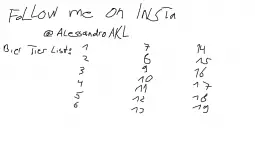 FoLLOW me on INSTA
@AlessandroAKL
Bier Tier Lists 1 7 14
2 8 15
3 9 16
4 10 17
5 11 18
6 12 19
13